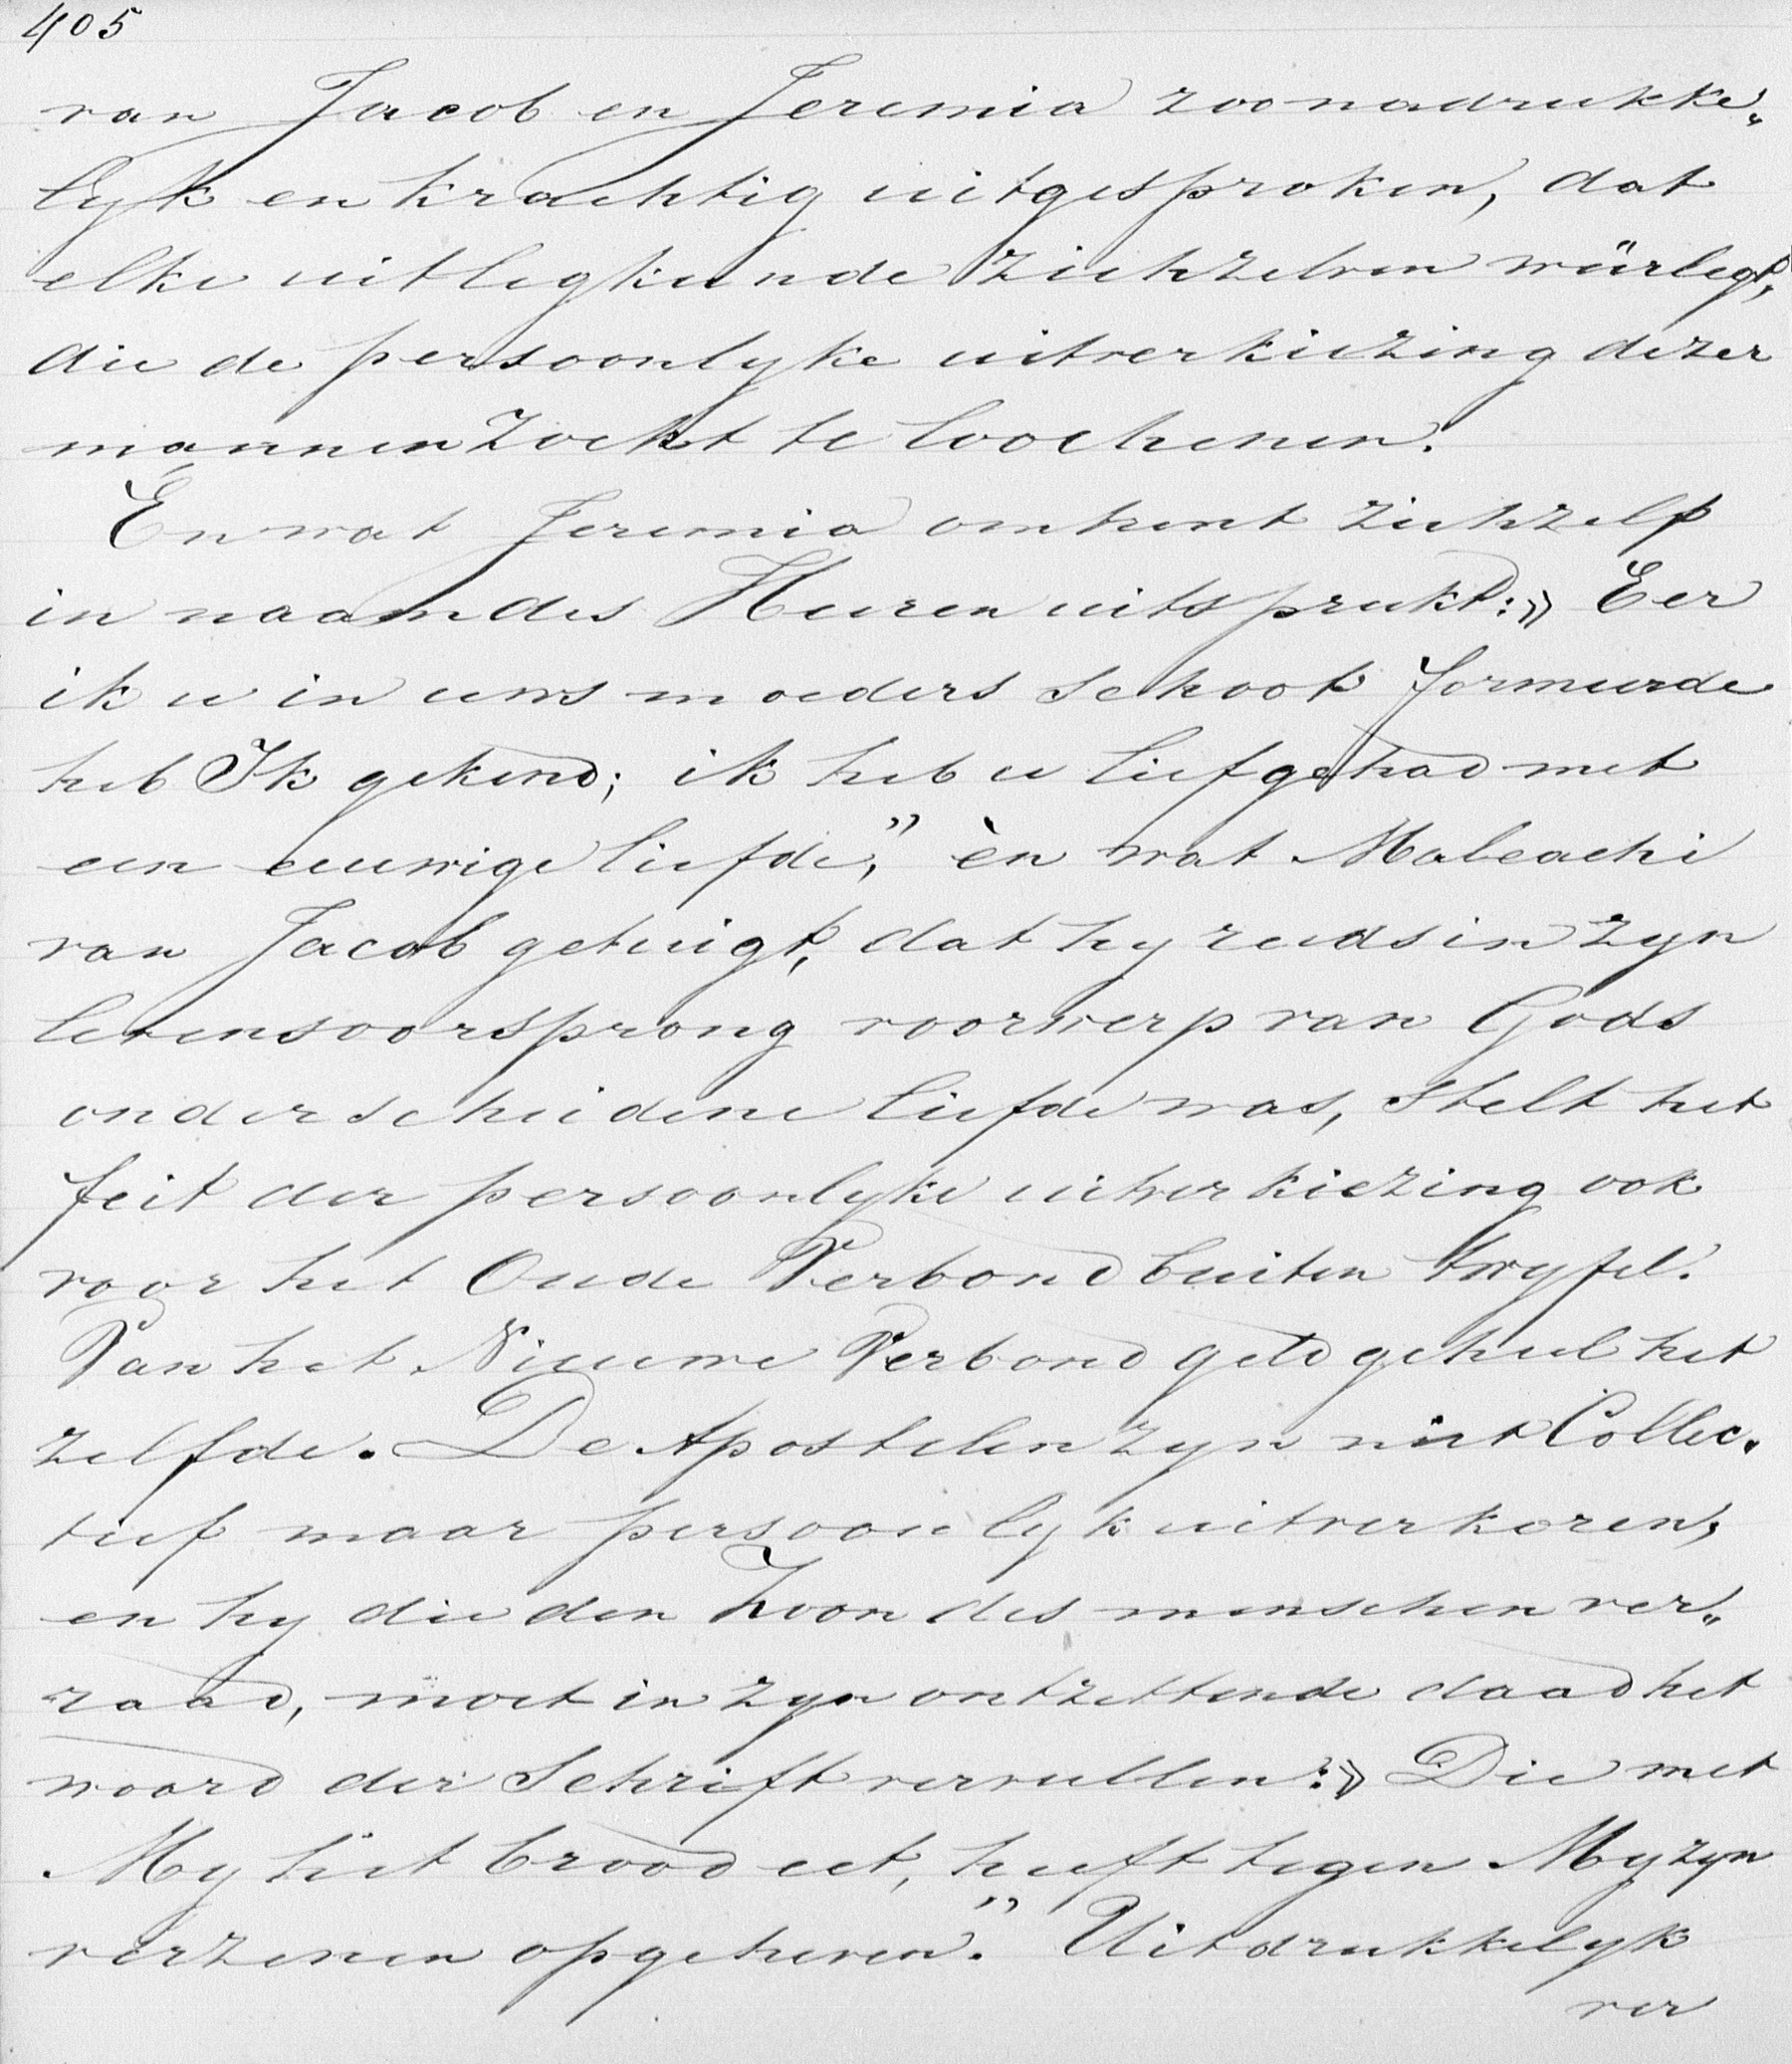 405
van Jacob en Jeremia zoo nadrukke„
lyk en krachtig uitgesproken, dat
elke uitlegkunde zichzelven weêrlegt,
die de persoonlyke uitverkiezing dezer
mannen zoekt te loochenen.
En wat Jeremia omtrent zichzelf
in naam des Heeren uitspreekt: » Eer
ik u in uws moeders schoot formeerde
heb Ik gekend; ik heb u liefgehad met
een eeuwige liefde,” èn wat Maleachi
van Jacob getuigt, dat hy reeds in zyn
levensoorsprong voorwerp van Gods
onderscheidene liefde was, stelt het
feit der persoonlyke uitverkiezing ook
voor het Oude Verbond buiten twyfel.
Van het Nieuwe Verbond geld geheel het
zelfde. De Apostelen zyn niet Collec„
tief maar persoonlyk uitverkoren,
en hy die den Zoon des menschen ver„
raad, moet in zyn ontzettende daad het
woord der Schrift vervullen: » Die met
My het brood eet, heeft tegen My zyn
verzenen opgeheven.” Uitdrukkelyk
ver